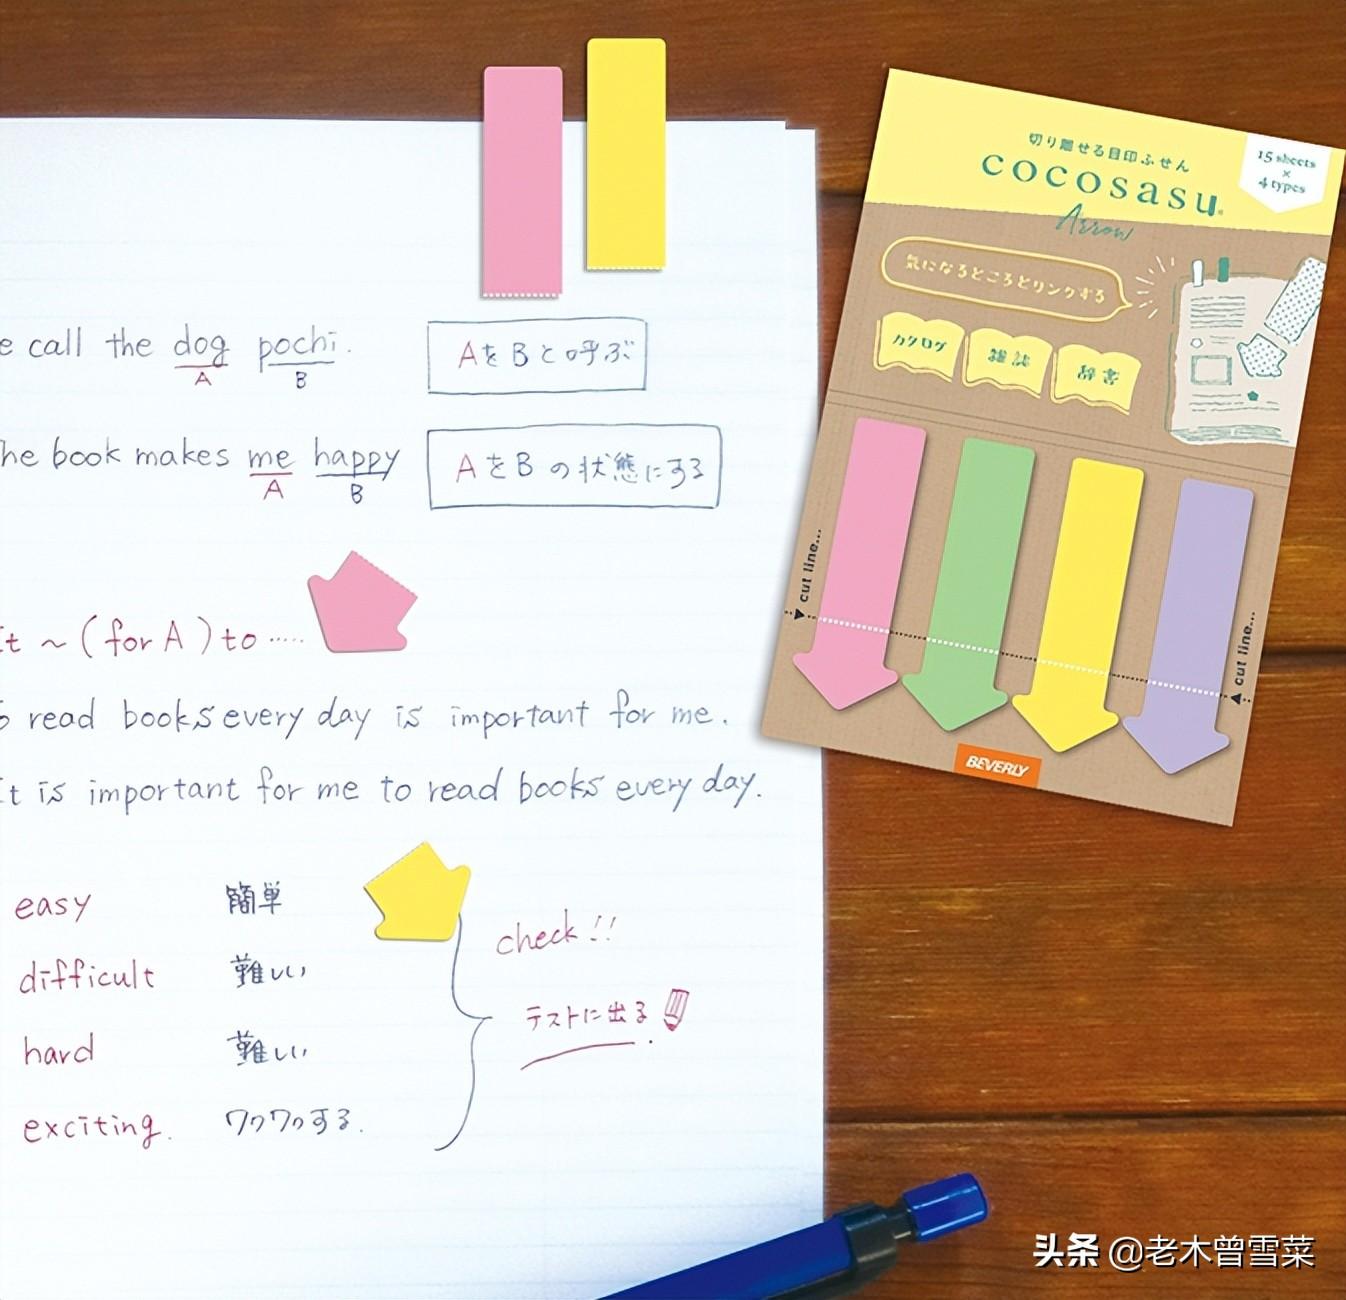 切り離せる目印ふせん
cocosasu
Arrow
15 sheets
×
4 types
気になるところとリンクする
カタログ
雑誌
辞書
cut line...
cut line...
BEVERLY
e call the dog pochi.
A B
AをBと呼ぶ
he book makes me happy
A B
AをBの状態にする
It ~ (for A) to .....
o read books every day is important for me.
It is important for me to read books every day.
easy 簡単
difficult 難しい
hard 難しい
exciting. ワクワクする.
check!!
テストに出る
头条 @老木曾雪菜